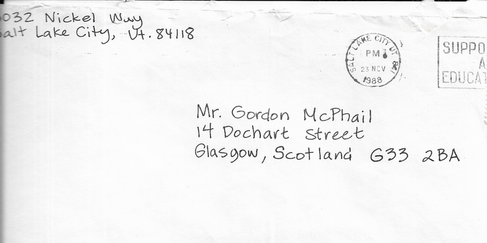 6032 Nickel Way
Salt Lake City, Ut. 84118
SALT LAKE CITY UT 841
PM
23 NOV
1988
SUPPO
A
EDUCAT
Mr. Gordon McPhail
14 Dochart Street
Glasgow, Scotland G33 2BA